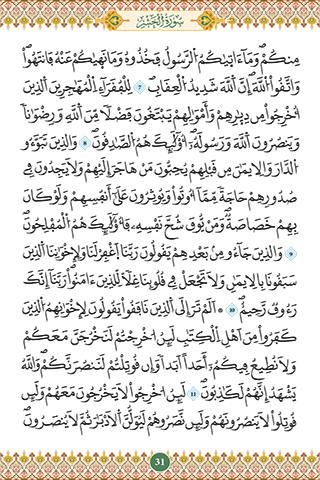 سُورَةُ الْحَشْرِ
مِنكُمْ وَمَآ ءَاتَيٰكُمُ الرَّسُولُ فَخُذُوهُ وَمَا نَهَيٰكُمْ عَنْهُ فَانتَهُواْ
وَاتَّقُواْ اللَّهَ إِنَّ اللَّهَ شَدِيدُ الْعِقَابِ ٧ لِلْفُقَرَآءِ الْمُهَٰجِرِينَ الَّذِينَ
أُخْرِجُواْ مِن دِيٰرِهِمْ وَأَمْوَٰلِهِمْ يَبْتَغُونَ فَضْلًا مِّنَ اللَّهِ وَرِضْوَٰنًا
وَيَنصُرُونَ اللَّهَ وَرَسُولَهُۥٓ أُوْلَٰٓئِكَ هُمُ الصَّٰدِقُونَ ٨ وَالَّذِينَ تَبَوَّءُو
الدَّارَ وَالِايمَٰنَ مِن قَبْلِهِمْ يُحِبُّونَ مَنْ هَاجَرَ إِلَيْهِمْ وَلَا يَجِدُونَ فِي
صُدُورِهِمْ حَاجَةً مِّمَّآ أُوتُواْ وَيُوثِرُونَ عَلَىٰٓ أَنفُسِهِمْ وَلَوْ كَانَ
بِهِمْ خَصَاصَةٌ وَمَنْ يُّوقَ شُحَّ نَفْسِهِۦ فَأُوْلَٰٓئِكَ هُمُ الْمُفْلِحُونَ
٩ وَالَّذِينَ جَآءُو مِنۢ بَعْدِهِمْ يَقُولُونَ رَبَّنَا اَغْفِرْ لَنَا وَلِإِخْوَٰنِنَا الَّذِينَ
سَبَقُونَا بِالِايمَٰنِ وَلَا تَجْعَلْ فِي قُلُوبِنَا غِلًّا لِّلَّذِينَ ءَامَنُواْ رَبَّنَآ إِنَّكَ
رَءُوفٌ رَّحِيمٌ ١٠ أَلَمْ تَرَ إِلَى الَّذِينَ نَافَقُواْ يَقُولُونَ لِإِخْوَٰنِهِمُ الَّذِينَ
كَفَرُواْ مِنَ اَهْلِ الْكِتَٰبِ لَئِنُ اخْرِجْتُمْ لَنَخْرُجَنَّ مَعَكُمْ
وَلَا نُطِيعُ فِيكُمُۥٓ أَحَدًا اَبَدًا وَإِن قُوتِلْتُمْ لَنَنصُرَنَّكُمْ وَاللَّهُ
يَشْهَدُ إِنَّهُمْ لَكَٰذِبُونَ ١١ لَئِنُ اخْرِجُواْ لَا يَخْرُجُونَ مَعَهُمْ وَلَئِن
قُوتِلُواْ لَا يَنصُرُونَهُمْ وَلَئِن نَّصَرُوهُمْ لَيُوَلُّنَّ الَادْبَٰرَ ثُمَّ لَا يُنصَرُونَ
31